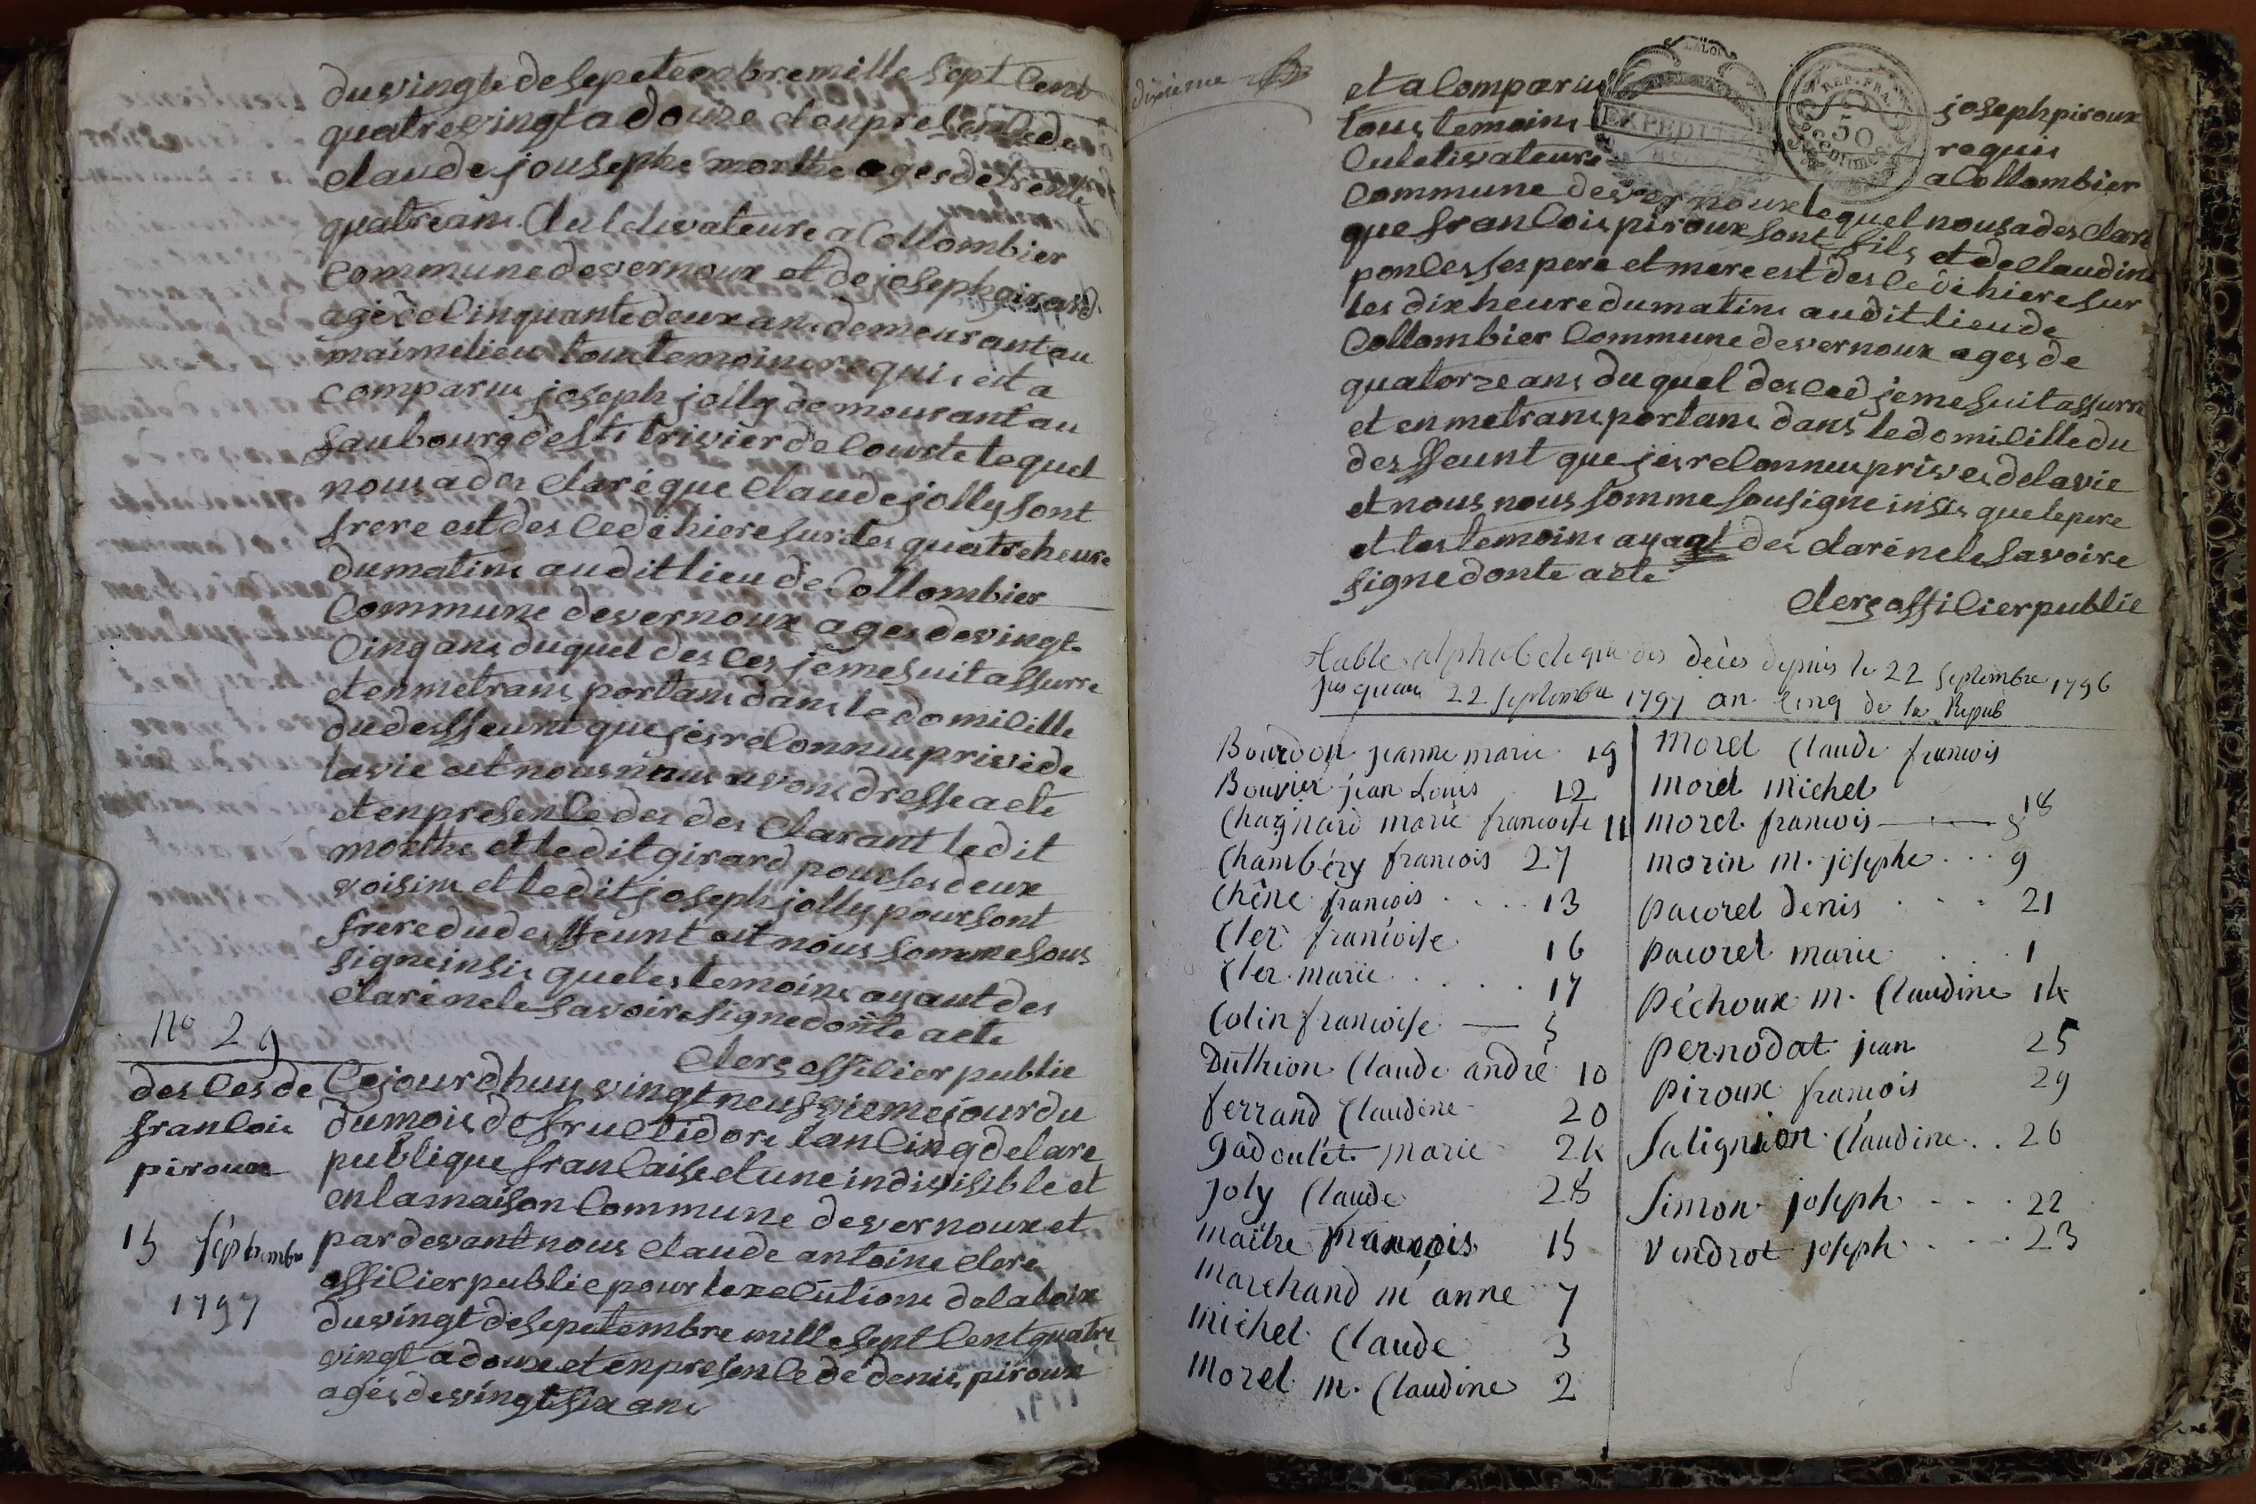 du vingte de sepetembre mille sept Cent
quatre vingt a douze et en presente de
claude jousephe morthe ages de trente
quatre ans Culetivateure a Collombier
Commune de vernoux et de joseph girard
agé de Cinquante deux ans demeurant au
maimelieu tous temoins requis est a
comparus joseph jolly demeurant au
faubourg de st trivier de Courte lequel
nous a des claré que Claude jolly sont
frere est des cedé hiere sur les quatre heure
du matins au dit lieu de Collombier
Commune de vernoux ages de vingt
Cinq ans duquel des ces je me suit assurre
et en me trans portans dans le domicille
du desffeunt que jes reconnus privé de
la vie et nous nous avons dresse acte
et en presence des des clarant le dit
morthe et le dit girard pour ses deux
voisins et le dit joseph jolly pour sont
frere du desffeunt et nous somme sous
signe insis que les temoins ayant des
claré ne le savoire signe donte acte
Clerc officier publie
No 29
des ces de
francois
piroux
15 septembre
1797
Ce jour dhuy vingt neufvieme jour du
du mois de fructidors lan Cinq de la re
publique francaise et une indivisible et
en la maison Commune de vernoux et
par devant nous claude antoine clerc
officier publie pour lexecutions de la loix
du vingt de sepetembre mille sept Cent quatre
vingt a douze et en presence de denis piroux
agés de vingt six ans
dixieme
et a Comparus joseph piroux
tous temoins requis
Culetivateure a Collombier
Commune de vernoux lequel nous a des claré
que francois piroux sont fils et de claudine
ponces ses pere et mere est des cedé hiere sur
les dix heure du matins au dit lieu de
Collombier Commune de vernoux ages de
quatorze ans du quel des ced je me suit assurre
et en me trans portans dans le domicille du
desffeunt que jes reconnus prives de la vie
et nous nous somme sousigne insis que le pere
et les temoins ayant des claré ne le savoire
signe donte acte
Clerc officier publie
EXPEDIT
REP. FRA.
50
Centimes
Table alphabetique des décès depuis le 22 septembre 1796
jusquau 22 septembre 1797 an cinq de la Repub
Bourdon jeanne marie 19
Bouvier jean Louis 12
Chagnard marie francoise 11
Chambéry francois 27
Chêne francois 13
Clerc francoise 16
Clerc marie 17
Colin francoise 5
Duthion Claude andré 10
ferrand Claudine 20
gadoulét marie 24
joly Claude 28
maître francois 15
marchand m anne 7
michel Claude 3
morel m. Claudine 2
morel Claude francois
morel michel 18
morel francois 8
morin m. josephe 9
pacorel denis 21
pacorel marie 1
péchoux m. Claudine 14
pernodat jean 25
piroux francois 29
salignion Claudine 26
simon joseph 22
vendrot joseph 23